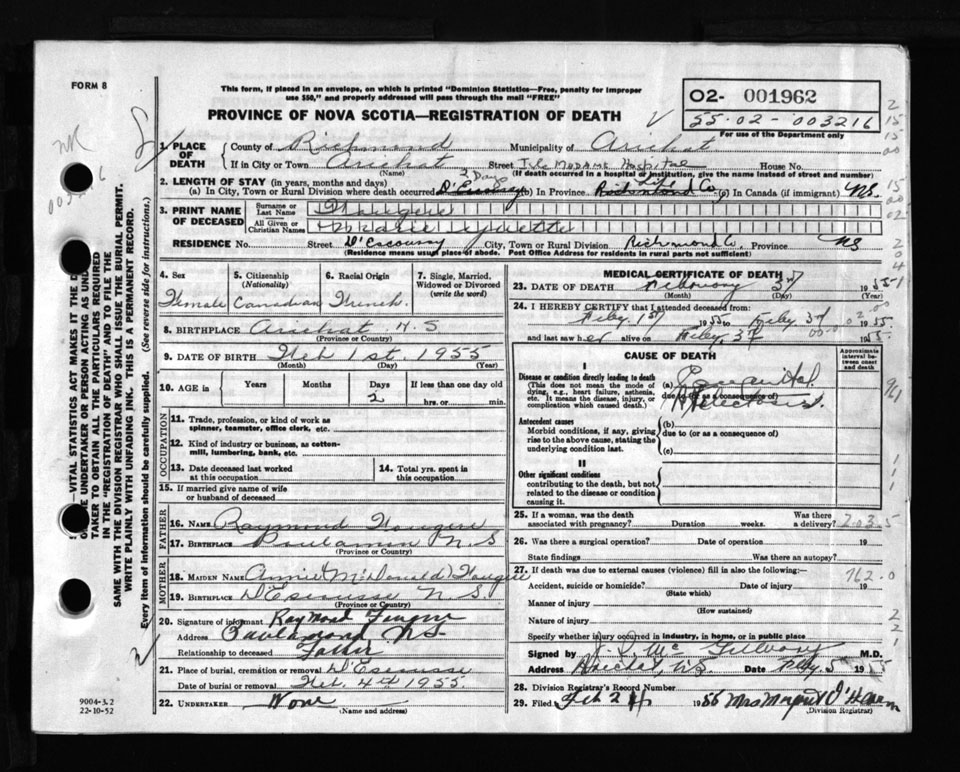 FORM 8
This form, if placed in an envelope, on which is printed "Dominion Statistics—Free, penalty for improper
use $50," and properly addressed will pass through the mail "FREE"
PROVINCE OF NOVA SCOTIA—REGISTRATION OF DEATH
O2- 001962
55-02-003216
For use of the Department only
1. PLACE OF DEATH
County of Richmond Municipality of Arichat
If in City or Town Arichat Street Isle Madame Hospital House No.
(Name) (If death occurred in a hospital or institution, give the name instead of street and number)
2. LENGTH OF STAY (in years, months and days) 2 Days
(a) In City, Town or Rural Division where death occurred (b) In Province Life (c) In Canada (if immigrant) NS.
3. PRINT NAME OF DECEASED
Surname or Last Name Fougere
All Given or Christian Names Marie
RESIDENCE No. Street D'Escoussy City, Town or Rural Division Richmond Co. Province NS
(Residence means usual place of abode. Post Office Address for residents in rural parts not sufficient)
4. Sex Female
5. Citizenship (Nationality) Canadian
6. Racial Origin French.
7. Single, Married, Widowed or Divorced (write the word)
8. BIRTHPLACE Arichat N.S
(Province or Country)
9. DATE OF BIRTH Feb 1st. 1955
(Month) (Day) (Year)
10. AGE in Years Months Days 2 If less than one day old hrs. or min.
OCCUPATION
11. Trade, profession, or kind of work as spinner, teamster, office clerk, etc.
12. Kind of industry or business, as cotton-mill, lumbering, bank, etc.
13. Date deceased last worked at this occupation
14. Total yrs. spent in this occupation
15. If married give name of wife or husband of deceased
FATHER
16. NAME Raymond Fougere
17. BIRTHPLACE N.S
(Province or Country)
MOTHER
18. MAIDEN NAME Annie (McDonald) Fougere
19. BIRTHPLACE D'Escousse N.S.
(Province or Country)
20. Signature of informant Raymond
Address N.S.
Relationship to deceased Father
21. Place of burial, cremation or removal D'Escousse
Date of burial or removal Feb. 4th 1955.
22. UNDERTAKER None
(Name and address)
MEDICAL CERTIFICATE OF DEATH
23. DATE OF DEATH February 3rd 1955
(Month) (Day) (Year)
24. I HEREBY CERTIFY that I attended deceased from
Feby 1st 1955 to Feby 3rd 1955.
and last saw her alive on Feby. 3rd 1955.
CAUSE OF DEATH
Approximate interval between onset and death
I
Disease or condition directly leading to death
(This does not mean the mode of dying, e.g., heart failure, asthenia, etc. It means the disease, injury, or complication which caused death.)
(a) Congenital
due to (or as a consequence of)
Atelectasis.
Antecedent causes
Morbid conditions, if any, giving rise to the above cause, stating the underlying condition last.
(b)
due to (or as a consequence of)
(c)
II
Other significant conditions
contributing to the death, but not related to the disease or condition causing it.
25. If a woman, was the death associated with pregnancy? Duration weeks. Was there a delivery?
26. Was there a surgical operation? Date of operation 19
State findings Was there an autopsy?
27. If death was due to external causes (violence) fill in also the following:— 762.0
Accident, suicide or homicide? Date of injury 19
(State which)
Manner of injury
(How sustained)
Nature of injury
Specify whether injury occurred in industry, in home, or in public place
Signed by M.D.
Address Arichat, NS. Date Feby. 5 1955
28. Division Registrar's Record Number
29. Filed Feb 1955 Mrs
(Division Registrar)
9004-3.2
22-10-52
SAME WITH THE DIVISION REGISTRAR WHO SHALL ISSUE THE BURIAL PERMIT.
WRITE PLAINLY WITH UNFADING INK. THIS IS A PERMANENT RECORD.
Every item of information should be carefully supplied. (See reverse side for instructions.)
VITAL STATISTICS ACT MAKES IT THE
UNDERTAKER OR PERSON ACTING AS
TAKER TO OBTAIN ALL THE PARTICULARS REQUIRED
IN THE "REGISTRATION OF DEATH" AND TO FILE THE